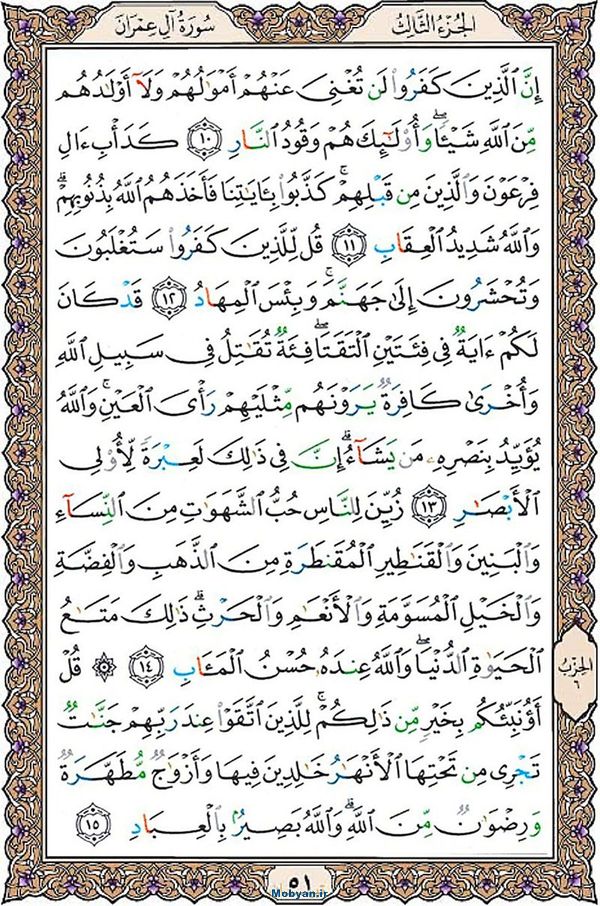 سُورَةُ آلِ عِمْرَان
الجُزءُ الثَّالِثُ
إِنَّ ٱلَّذِينَ كَفَرُوا۟ لَن تُغْنِىَ عَنْهُمْ أَمْوَٰلُهُمْ وَلَآ أَوْلَٰدُهُم
مِّنَ ٱللَّهِ شَيْـًٔا ۖ وَأُو۟لَٰٓئِكَ هُمْ وَقُودُ ٱلنَّارِ ١٠ كَدَأْبِ ءَالِ
فِرْعَوْنَ وَٱلَّذِينَ مِن قَبْلِهِمْ ۚ كَذَّبُوا۟ بِـَٔايَٰتِنَا فَأَخَذَهُمُ ٱللَّهُ بِذُنُوبِهِمْ ۗ
وَٱللَّهُ شَدِيدُ ٱلْعِقَابِ ١١ قُل لِّلَّذِينَ كَفَرُوا۟ سَتُغْلَبُونَ
وَتُحْشَرُونَ إِلَىٰ جَهَنَّمَ ۚ وَبِئْسَ ٱلْمِهَادُ ١٢ قَدْ كَانَ
لَكُمْ ءَايَةٌ فِى فِئَتَيْنِ ٱلْتَقَتَا ۖ فِئَةٌ تُقَٰتِلُ فِى سَبِيلِ ٱللَّهِ
وَأُخْرَىٰ كَافِرَةٌ يَرَوْنَهُم مِّثْلَيْهِمْ رَأْىَ ٱلْعَيْنِ ۚ وَٱللَّهُ
يُؤَيِّدُ بِنَصْرِهِۦ مَن يَشَآءُ ۗ إِنَّ فِى ذَٰلِكَ لَعِبْرَةً لِّأُو۟لِى
ٱلْأَبْصَٰرِ ١٣ زُيِّنَ لِلنَّاسِ حُبُّ ٱلشَّهَوَٰتِ مِنَ ٱلنِّسَآءِ
وَٱلْبَنِينَ وَٱلْقَنَٰطِيرِ ٱلْمُقَنطَرَةِ مِنَ ٱلذَّهَبِ وَٱلْفِضَّةِ
وَٱلْخَيْلِ ٱلْمُسَوَّمَةِ وَٱلْأَنْعَٰمِ وَٱلْحَرْثِ ۗ ذَٰلِكَ مَتَٰعُ
ٱلْحَيَوٰةِ ٱلدُّنْيَا ۖ وَٱللَّهُ عِندَهُۥ حُسْنُ ٱلْمَـَٔابِ ١٤ ۞ قُلْ
أَؤُنَبِّئُكُم بِخَيْرٍ مِّن ذَٰلِكُمْ ۚ لِلَّذِينَ ٱتَّقَوْا۟ عِندَ رَبِّهِمْ جَنَّٰتٌ
تَجْرِى مِن تَحْتِهَا ٱلْأَنْهَٰرُ خَٰلِدِينَ فِيهَا وَأَزْوَٰجٌ مُّطَهَّرَةٌ
وَرِضْوَٰنٌ مِّنَ ٱللَّهِ ۗ وَٱللَّهُ بَصِيرٌۢ بِٱلْعِبَادِ ١٥
الحِزْبُ
٦
٥١
Mobyan.ir